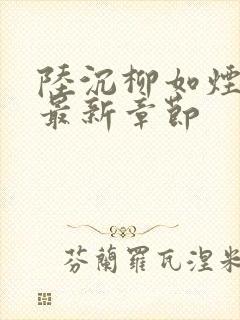 陸沉柳如煙
最新章節
芬蘭羅瓦涅米